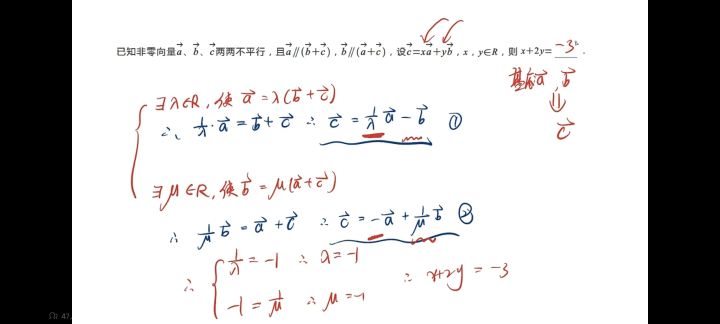 已知非零向量a⃗、b⃗、c⃗两两不平行，且a⃗∥(b⃗+c⃗)，b⃗∥(a⃗+c⃗)，设c⃗=xa⃗+yb⃗，x，y∈R，则 x+2y= -3 .
基底a⃗, b⃗
⇓
c⃗
∃λ∈R, 使 a⃗ = λ(b⃗+c⃗)
∴ 1/λ·a⃗ = b⃗+c⃗ ∴ c⃗ = 1/λ a⃗ - b⃗ ①
∃μ∈R, 使 b⃗ = μ(a⃗+c⃗)
∴ 1/μ b⃗ = a⃗+c⃗ ∴ c⃗ = -a⃗ + 1/μ b⃗ ②
∴ { 1/λ = -1 ∴ λ=-1
-1 = 1/μ ∴ μ=-1 ∴ x+2y = -3
47